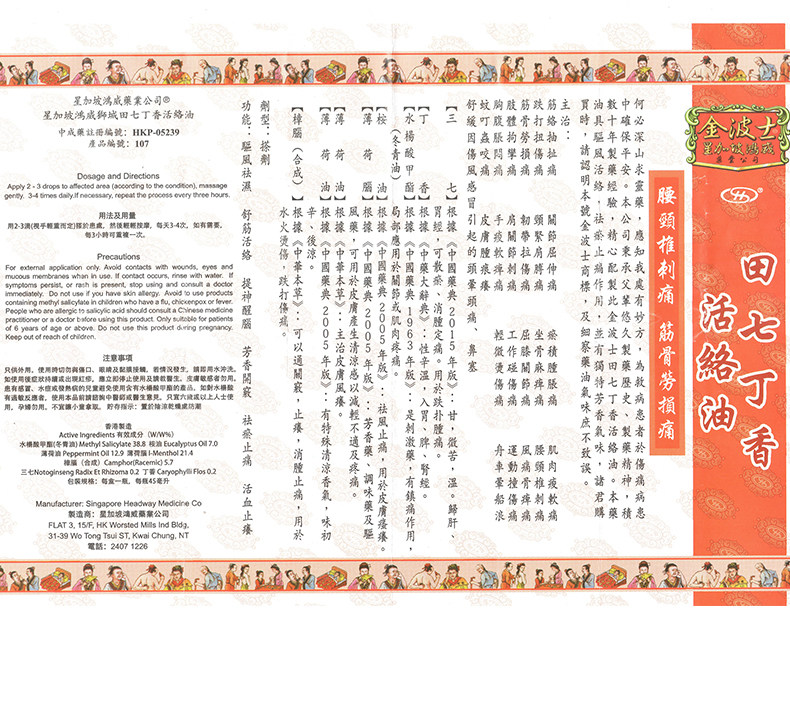 金波士
星加坡鴻威
藥業公司
田七丁香
活絡油
腰頸椎刺痛 筋骨勞損痛
何必深山求靈藥,應知我處有妙方,為救病患者於傷痛病患
中確保平安。本公司秉承父輩悠久製藥歷史、製藥精神,積
數十年製藥經驗,精心配製此金波士田七丁香活絡油。本藥
油具驅風活絡,祛瘀止痛作用,並有獨特芳香氣味,諸君購
買時,請認明本號金波士商標,及細察藥油氣味庶不致誤。
主治:
筋絡抽扯痛 關節屈伸痛 瘀積腫脹痛 肌肉疲軟痛
跌打扭傷痛 頸緊肩膊痛 坐骨麻痺痛 腰頸椎刺痛
筋骨勞損痛 韌帶拉傷痛 屈膝關節痛 風痛骨痺痛
肢體拘攣痛 肩關節刺痛 工作碰傷痛 運動撞傷痛
胸腹脹悶痛 手疲軟痺痛 輕微燙傷痛 舟車暈船浪
蚊叮蟲咬痛 皮膚腫痕癢
舒緩因傷風感冒引起的頭暈頭痛 鼻塞
【三七】根據《中國藥典2015年版》:甘,微苦,溫。歸肝、
胃經,可散瘀、消腫定痛。用於跌扑腫痛。
【丁香】根據《中藥大辭典》:性辛溫,入胃、脾、腎經。
【水楊酸甲酯】根據《中國藥典1963年版》:是刺激藥,有鎮痛作用,
(冬青油) 局部應用於關節或肌肉疼痛。
【桉油】根據《中國藥典2005年版》:祛風止痛,用於皮膚瘙癢。
【薄荷腦】根據《中國藥典2005年版》:芳香藥、調味藥及驅
風藥,可用於皮膚產生清涼感以減輕不適及疼痛。
【薄荷油】根據《中華本草》:主治皮膚風癢。
【薄荷油】根據《中國藥典2005年版》:有特殊清涼香氣,味初
辛、後涼。
【樟腦(合成)】根據《中華本草》:可以通關竅,止癢,消腫止痛,用於
水火燙傷,跌打傷痛。
劑型:搽劑
功能:驅風祛濕 舒筋活絡 提神醒腦 芳香開竅 祛瘀止痛 活血止癢
星加坡鴻威藥業公司®
星加坡鴻威獅城田七丁香活絡油
中成藥註冊編號: HKP-05239
產品編號: 107
Dosage and Directions
Apply 2 - 3 drops to affected area (according to the condition), massage
gently. 3-4 times daily.If necessary, repeat the process every three hours.
用法及用量
用2-3滴(視乎輕重而定)搽於患處,然後輕輕按摩,每天3-4次,如有需要,
每3小時可重複一次。
Precautions
For external application only. Avoid contacts with wounds, eyes and
mucous membranes when in use. If contact occurs, rinse with water. If
symptoms persist, or rash is present, stop using and consult a doctor
immediately. Do not use if you have skin allergy. Avoid to use products
containing methyl salicylate in children who have a flu, chickenpox or fever.
People who are allergic to salicylic acid should consult a Chinese medicine
practitioner or a doctor before using this product. Only suitable for patients
of 6 years of age or above. Do not use this product during pregnancy.
Keep out of reach of children.
注意事項
只供外用。使用時切勿與傷口、眼睛及黏膜接觸,若情況發生,請即用水沖洗。
如使用後症狀持續或出現紅疹,應立即停止使用及請教醫生。皮膚敏感者勿用。
患有感冒、水痘或發熱病的兒童避免使用含有水楊酸甲酯的產品。如對水楊酸
有過敏反應者,使用本品前請諮詢中醫師或醫生意見。只宜六歲或以上人士使
用。孕婦勿用。不宜讓小童拿取。 貯存指示:置於陰涼乾燥處防潮
香港製造
Active Ingredients 有效成分 (W/W%)
水楊酸甲酯(冬青油) Methyl Salicylate 38.8 桉油 Eucalyptus Oil 7.0
薄荷油 Peppermint Oil 12.9 薄荷腦 l-Menthol 21.4
樟腦(合成) Camphor(Racemic) 5.7
三七Notoginseng Radix Et Rhizoma 0.2 丁香 Caryophylli Flos 0.2
包裝規格:每盒一瓶,每瓶45毫升
Manufacturer: Singapore Headway Medicine Co
製造商:星加坡鴻威藥業公司
FLAT 3, 15/F, HK Worsted Mills Ind Bldg,
31-39 Wo Tong Tsui ST, Kwai Chung, NT
電話:2407 1226